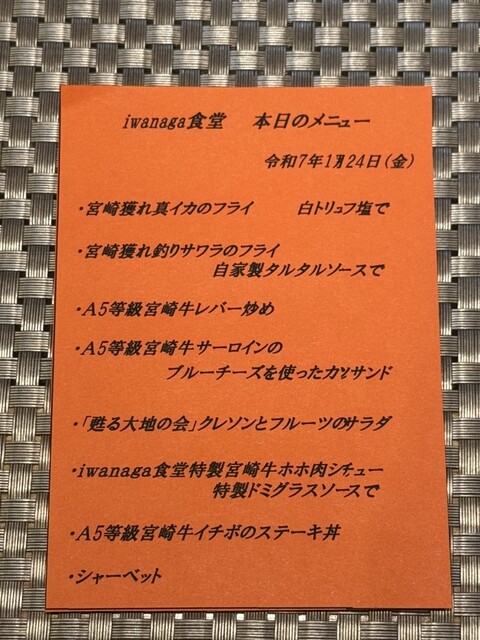 iwanaga食堂 本日のメニュー
令和7年1月24日(金)
・宮崎獲れ真イカのフライ 白トリュフ塩で
・宮崎獲れ釣りサワラのフライ
自家製タルタルソースで
・A5等級宮崎牛レバー炒め
・A5等級宮崎牛サーロインの
ブルーチーズを使ったカツサンド
・「甦る大地の会」クレソンとフルーツのサラダ
・iwanaga食堂特製宮崎牛ホホ肉シチュー
特製ドミグラスソースで
・A5等級宮崎牛イチボのステーキ丼
・シャーベット